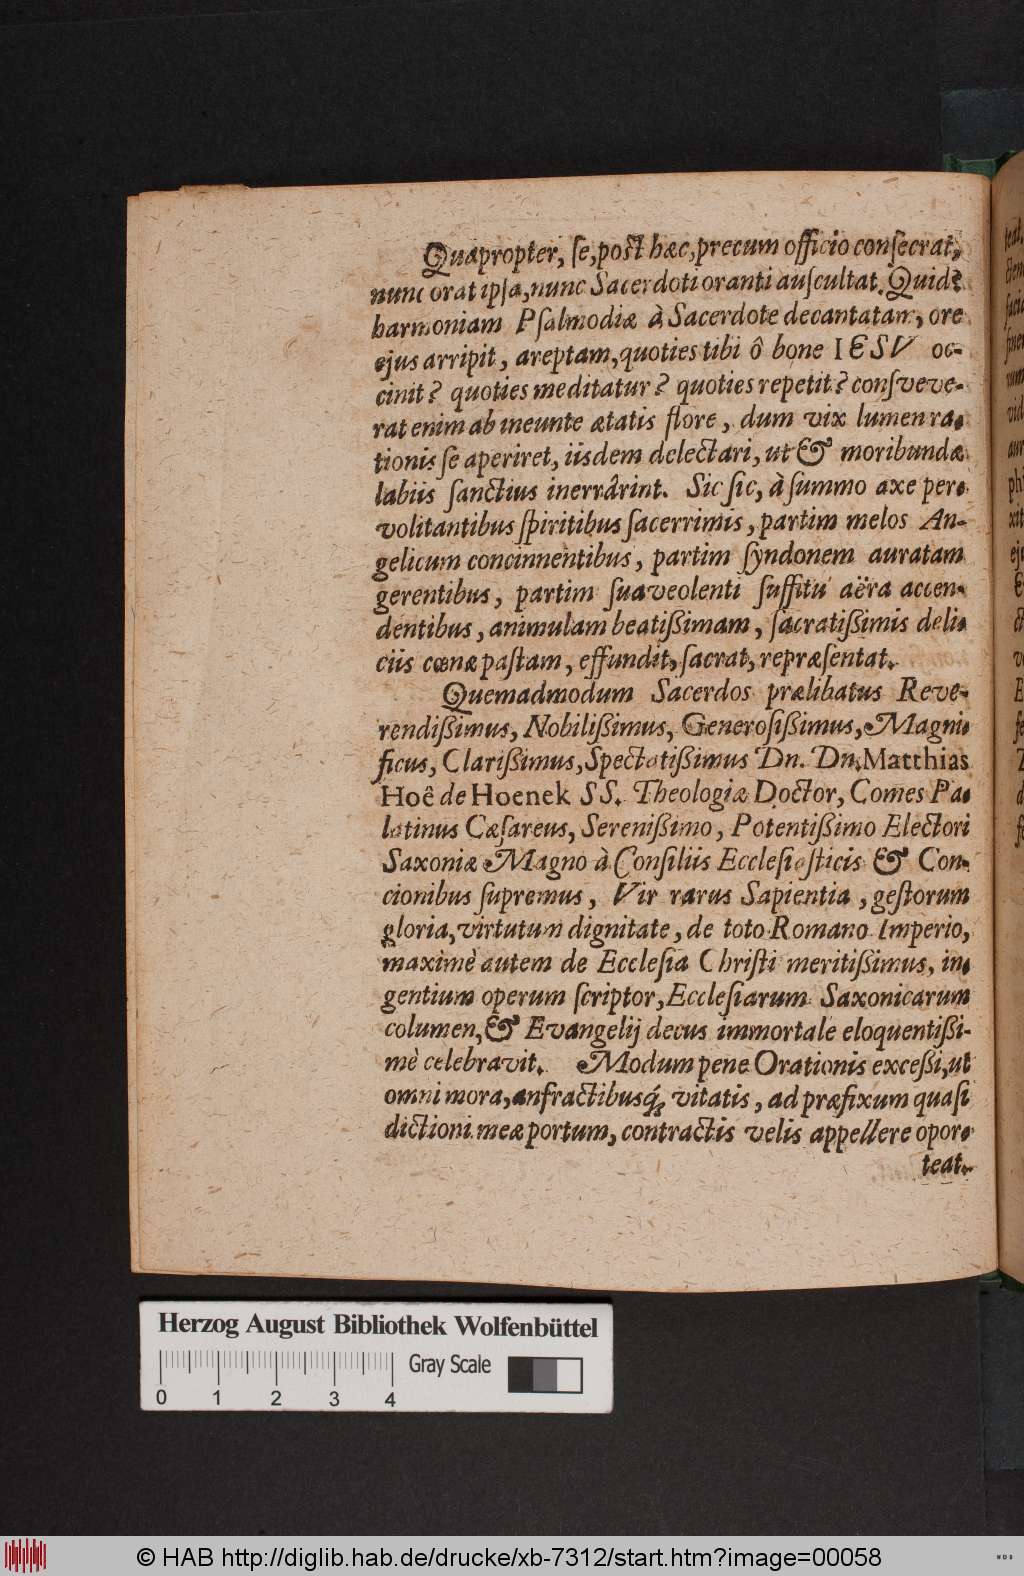 Quapropter, ſe, poſt hæc, precum officio conſecrat,
nunc orat ipſa, nunc Sacerdoti oranti auſcultat. Quid?
harmoniam Pſalmodiæ à Sacerdote decantatam, ore
ejus arripit, areptam, quoties tibi ô bone IESV oc-
cinit? quoties meditatur? quoties repetit? conſveve-
rat enim ab ineunte ætatis flore, dum vix lumen ra-
tionis ſe aperiret, iisdem delectari, ut & moribundæ
labiis ſanctius inerrârint. Sic ſic, à ſummo axe per-
volitantibus ſpiritibus ſacerrimis, partim melos An-
gelicum concinnentibus, partim ſyndonem auratam
gerentibus, partim ſuaveolenti ſuffitu aëra accen-
dentibus, animulam beatißimam, ſacratißimis deli-
ciis cœnæ paſtam, effundit, ſacrat, repræſentat.
Quemadmodum Sacerdos prælibatus Reve-
rendißimus, Nobilißimus, Generoſißimus, Magni-
ficus, Clarißimus, Spectatißimus Dn. Dn. Matthias
Hoê de Hoenek SS. Theologiæ Doctor, Comes Pa-
latinus Cæſareus, Serenißimo, Potentißimo Electori
Saxoniæ Magno à Conſiliis Eccleſiaſticis & Con-
cionibus ſupremus, Vir rarus Sapientia, geſtorum
gloria, virtutum dignitate, de toto Romano Imperio,
maximè autem de Eccleſia Chriſti meritißimus, in-
gentium operum ſcriptor, Eccleſiarum Saxonicarum
columen, & Evangelij decus immortale eloquentißi-
mè celebravit. Modum pene Orationis exceßi, ut
omni mora, anfractibusq́; vitatis, ad præfixum quaſi
dictioni meæ portum, contractis velis appellere opor-
teat.
Herzog August Bibliothek Wolfenbüttel
Gray Scale
0 1 2 3 4
© HAB http://diglib.hab.de/drucke/xb-7312/start.htm?image=00058